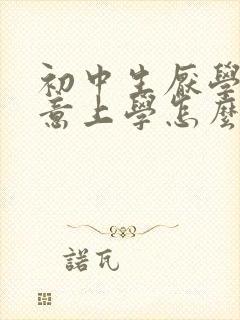 初中生厭學
意上學怎麼
諾瓦